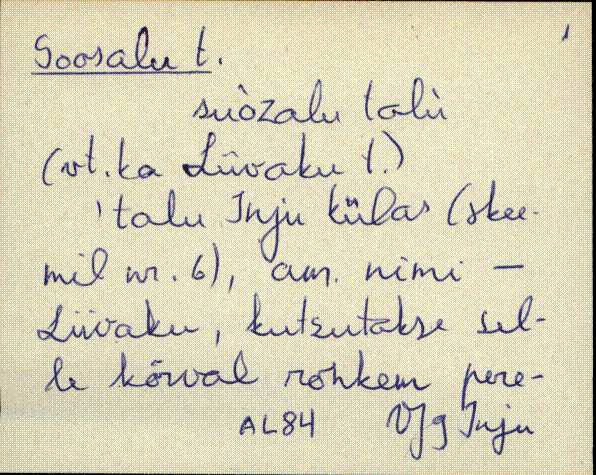 Soosalu t.
sùozalu talù
(vt. ka Liivaku t.)
'talu Inju külas (skee-
mil nr. 6), am. nimi –
Liivaku, kutsutakse sel-
le kõrval rohkem pere-
AL84 VJg Inju